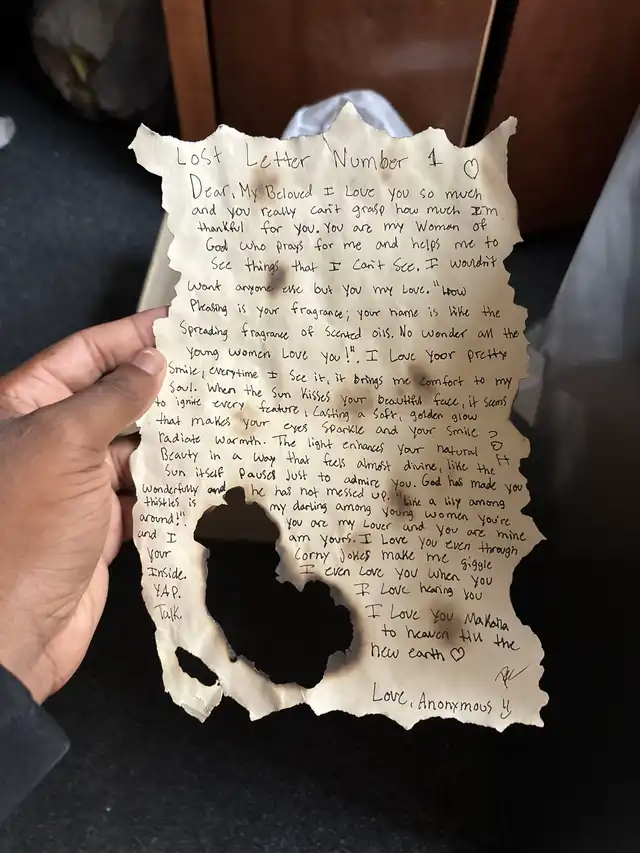 Lost Letter Number 1 ♡
Dear, My Beloved I Love you so much
and you really can't grasp how much I'm
thankful for you. You are my Woman of
God who prays for me and helps me to
See things that I can't See. I wouldn't
want anyone else but you my love. "How
Pleasing is your fragrance; your name is like the
Spreading fragrance of Scented oils. No wonder all the
young women Love you!". I Love your pretty
Smile, everytime I See it, it brings me comfort to my
Soul. When the Sun kisses your beautiful face, it seems
to ignite every feature, Casting a Soft, golden glow
that makes your eyes Sparkle and your Smile
radiate warmth. The light enhances your natural
Beauty in a way that feels almost divine, like the
Sun itself Pauses Just to admire you. God has made you
wonderfully and he has not messed up. "Like a lily among
thistles is my darling among young women you're
around!" you are my Lover and you are mine
and I am yours. I Love you even through
your Corny Jokes make me giggle
Inside. I even Love you when you
YAP. I Love hearing you
Talk. I Love you Makaila
to heaven till the
new earth ♡
Love, Anonymous